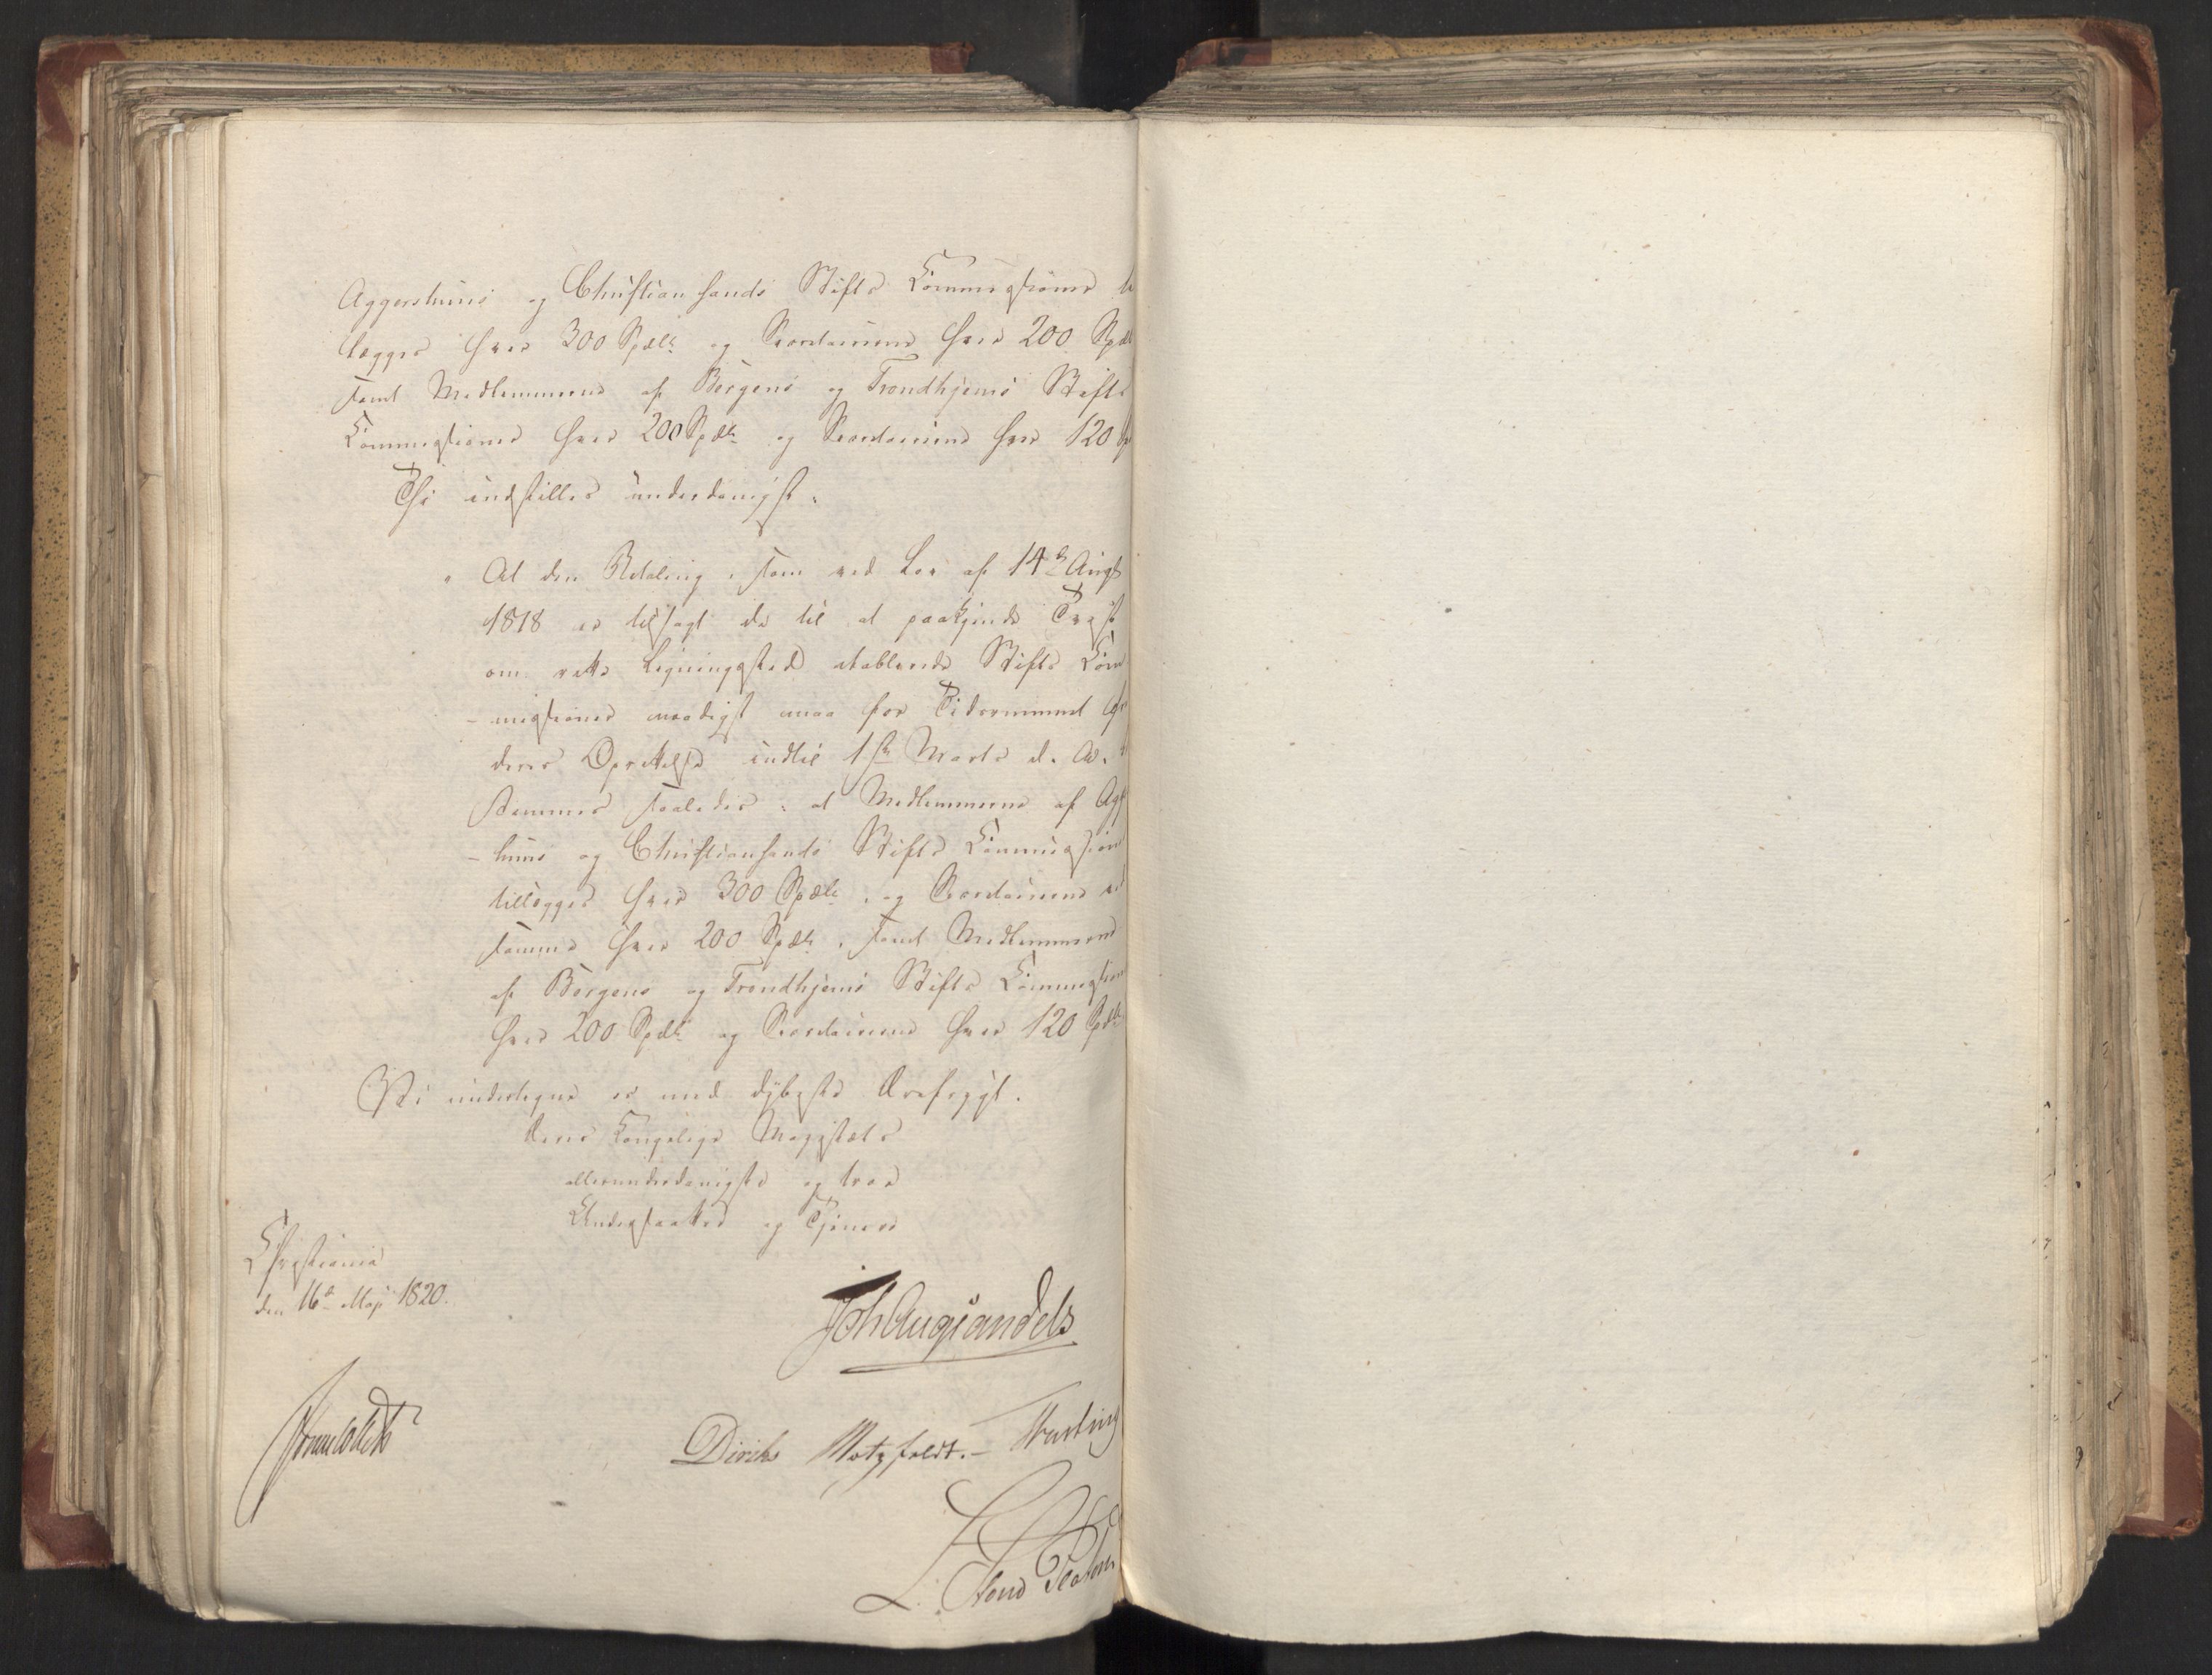 Aggershuus og Christiansands Stifts Commissioner
lægges hver 300 Spdlr og Secretairerne hver 200 Spdlr
samt Medlemmerne af Bergens og Trondhjems Stifts
Commissioner hver 200 Spdlr og Secretairerne hver 120
Thi indstilles underdanigst:
"At den Betaling, som ved Lov af 14de Augst
1818 er tilsagt de til at paakjende Tvist
om rette Ligningssted etablerede Stifts Com
-missioner naadigst maa for Tidsrummet fra
deres Oprettelse indtil 1ste Marts d. A.
stemmes saaledes: at Medlemmerne af Agg
-huus og Christiansands Stifts Commission
tillægges hver 300 Spdlr, og Secretairerne ved
samme hver 200 Spdlr, samt Medlemmerne
af Bergens og Trondhjems Stifts Commission
hver 200 Spdlr og Secretairerne hver 120 Spdlr
Vi undertegne os med dybeste Ærefrygt.
Deres Kongelige Majestæts
allerunderdanigste og troe
Undersaatter og Tjenere
Christiania
den 16de Maji 1820.
Joh Aug Sandels
Sommerfeldt
Diriks Motzfeldt.- Treschow
L. Stoud Platou